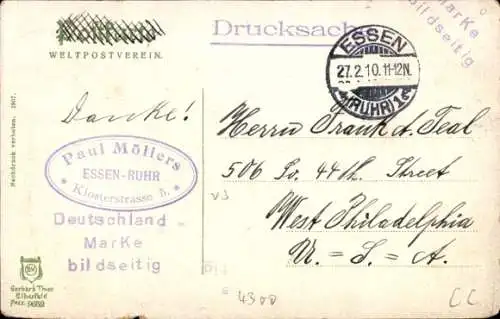 Drucksache
Marke
bildseitig
WELTPOSTVEREIN.
ESSEN
27.2.10.11-12N.
(RUHR) 1
Danke!
Herrn Frank A. Teal
506 So. 44th. Street
West Philadelphia
U. = S. = A.
Paul Möllers
ESSEN-RUHR
Klosterstrasse 5.
Deutschland
Marke
bildseitig
Nachdruck verboten. 1907.
Elberfeld
4300
CC